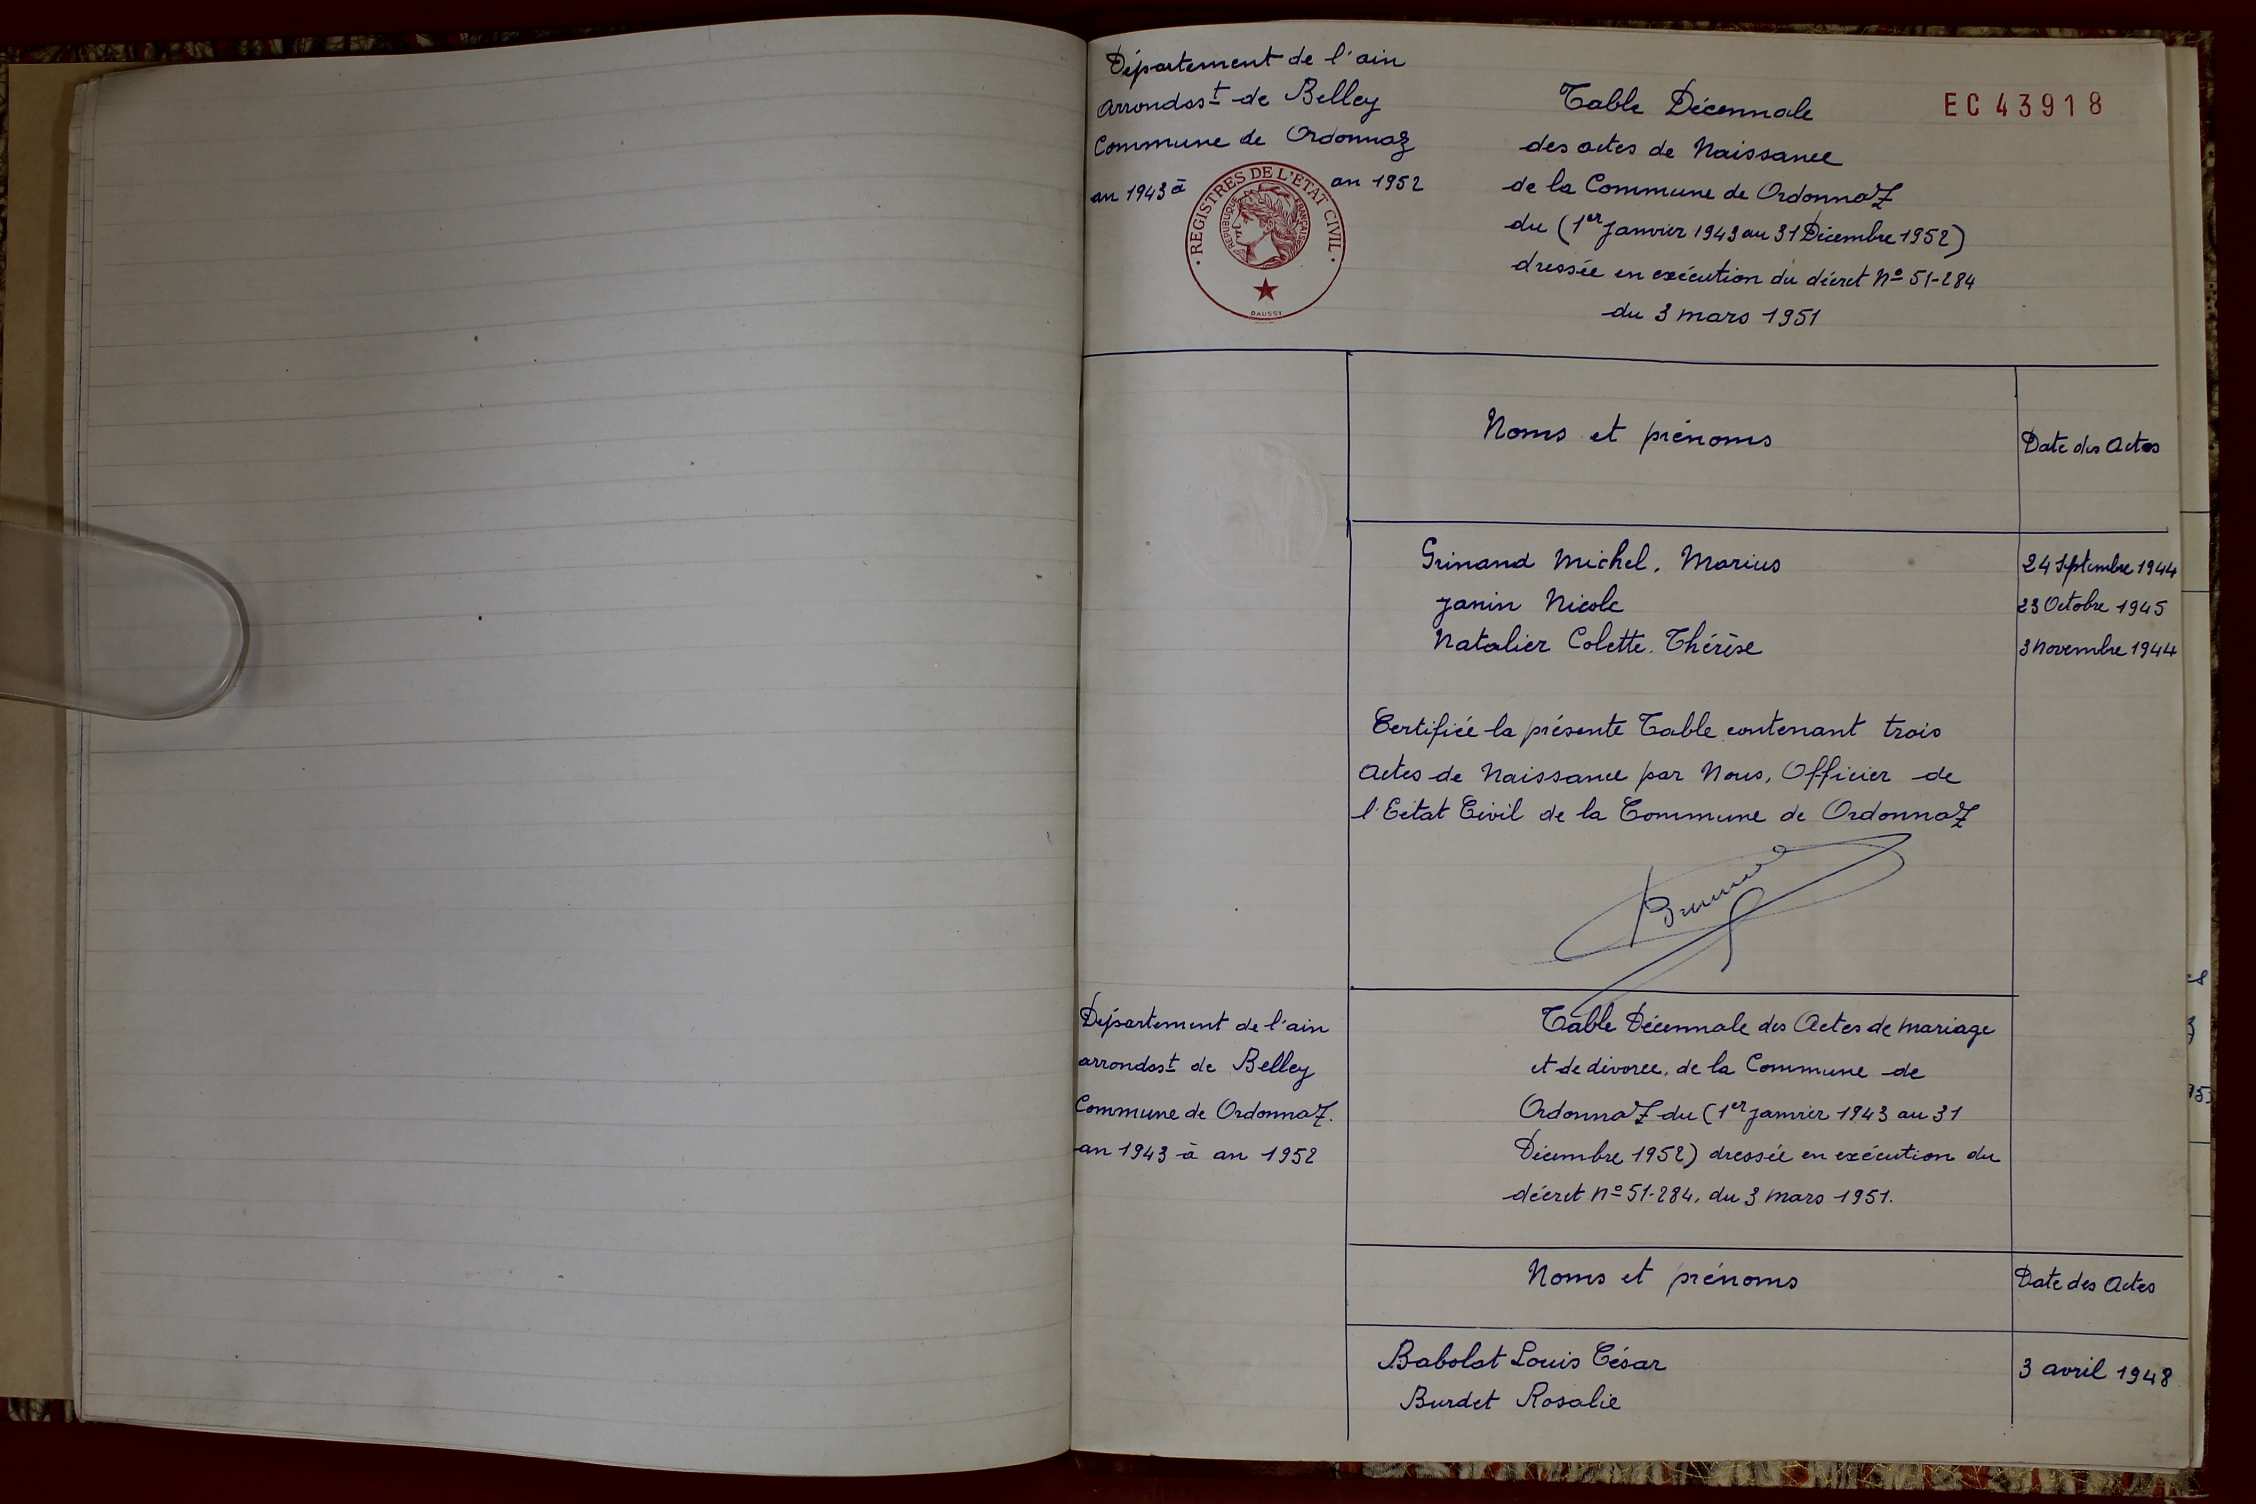 Département de l'ain
arrondost de Belley
Commune de Ordonnaz
an 1943 à an 1952
REGISTRES DE L'ETAT CIVIL
REPUBLIQUE FRANÇAISE
DAUSSY
Table Décennale
EC 43918
des actes de Naissance
de la Commune de Ordonnaz
du (1er Janvier 1943 au 31 Décembre 1952)
dressée en exécution du décret No 51-284
du 3 mars 1951
Noms et prénoms
Date des Actes
Grinand Michel. Marius 24 Septembre 1944
Janin Nicole 23 Octobre 1945
Natalier Colette. Thérèse 3 Novembre 1944
Certifiée la présente Table contenant trois
Actes de Naissance par Nous, Officier de
l'Eétat Civil de la Commune de Ordonnaz
Département de l'ain
arrondost de Belley
Commune de Ordonnaz.
an 1943 à an 1952
Table Décennale des Actes de mariage
et de divorce, de la Commune de
Ordonnaz du (1er janvier 1943 au 31
Décembre 1952) dressée en exécution du
décret No 51-284, du 3 mars 1951.
Noms et prénoms
Date des Actes
Babolat Louis César 3 avril 1948
Burdet Rosalie